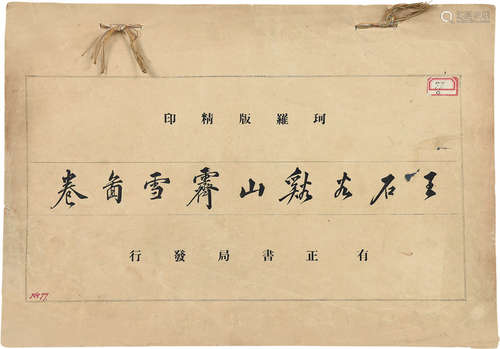 珂羅版精印
王石谷谿山霽雪啚卷
有正書局發行